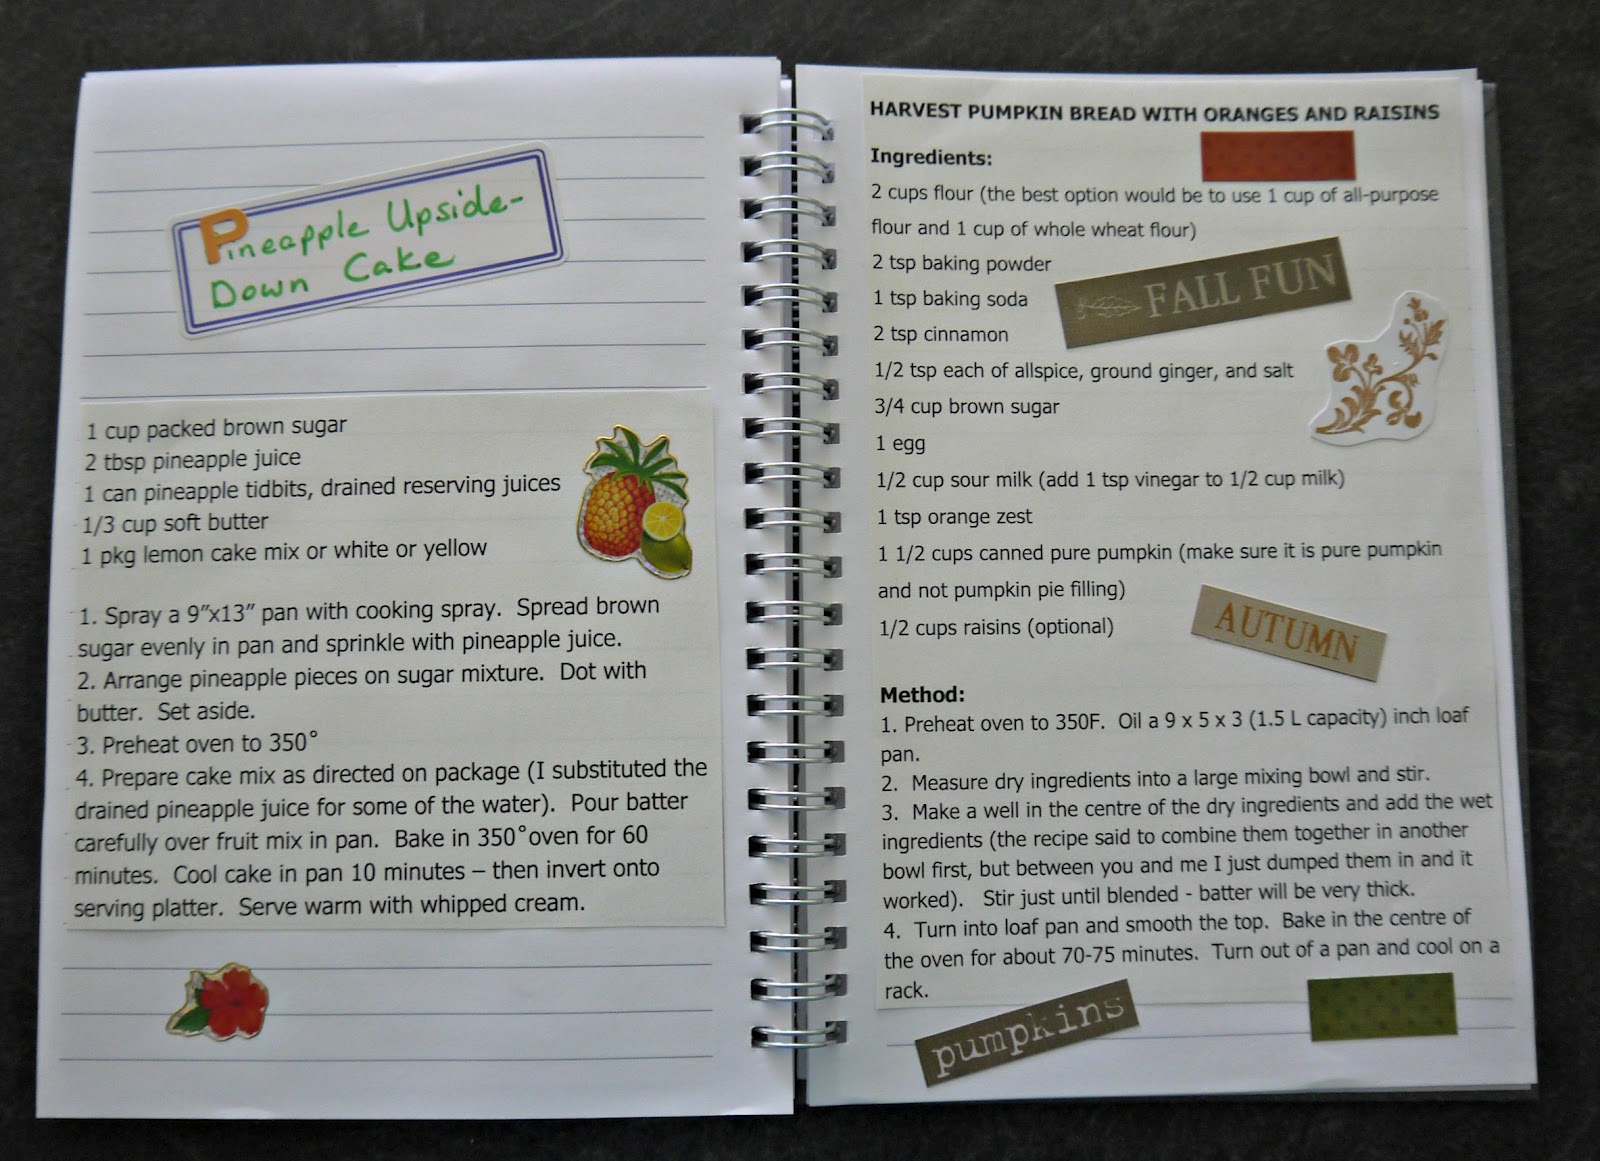 Pineapple Upside-
Down Cake
1 cup packed brown sugar
2 tbsp pineapple juice
1 can pineapple tidbits, drained reserving juices
1/3 cup soft butter
1 pkg lemon cake mix or white or yellow
1. Spray a 9"x13" pan with cooking spray. Spread brown
sugar evenly in pan and sprinkle with pineapple juice.
2. Arrange pineapple pieces on sugar mixture. Dot with
butter. Set aside.
3. Preheat oven to 350°
4. Prepare cake mix as directed on package (I substituted the
drained pineapple juice for some of the water). Pour batter
carefully over fruit mix in pan. Bake in 350°oven for 60
minutes. Cool cake in pan 10 minutes – then invert onto
serving platter. Serve warm with whipped cream.
HARVEST PUMPKIN BREAD WITH ORANGES AND RAISINS
Ingredients:
2 cups flour (the best option would be to use 1 cup of all-purpose
flour and 1 cup of whole wheat flour)
2 tsp baking powder
FALL FUN
1 tsp baking soda
2 tsp cinnamon
1/2 tsp each of allspice, ground ginger, and salt
3/4 cup brown sugar
1 egg
1/2 cup sour milk (add 1 tsp vinegar to 1/2 cup milk)
1 tsp orange zest
1 1/2 cups canned pure pumpkin (make sure it is pure pumpkin
and not pumpkin pie filling)
1/2 cups raisins (optional)
AUTUMN
Method:
1. Preheat oven to 350F. Oil a 9 x 5 x 3 (1.5 L capacity) inch loaf
pan.
2. Measure dry ingredients into a large mixing bowl and stir.
3. Make a well in the centre of the dry ingredients and add the wet
ingredients (the recipe said to combine them together in another
bowl first, but between you and me I just dumped them in and it
worked). Stir just until blended - batter will be very thick.
4. Turn into loaf pan and smooth the top. Bake in the centre of
the oven for about 70-75 minutes. Turn out of a pan and cool on a
rack.
pumpkins